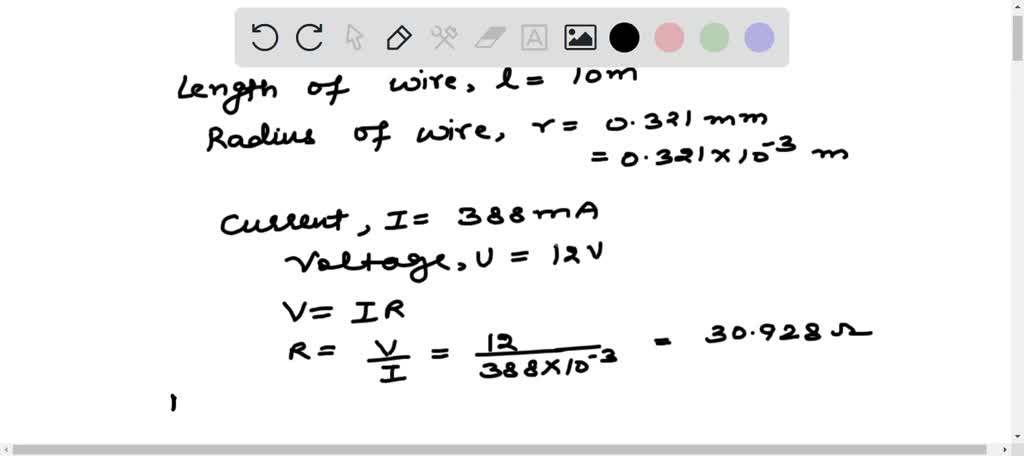 Length of wire, l = 10m
Radius of wire, r = 0.321 mm
= 0.321 × 10⁻³ m
Current, I = 388mA
Voltage, V = 12V
V = IR
R = V/I = 12/388×10⁻³ = 30.928 Ω